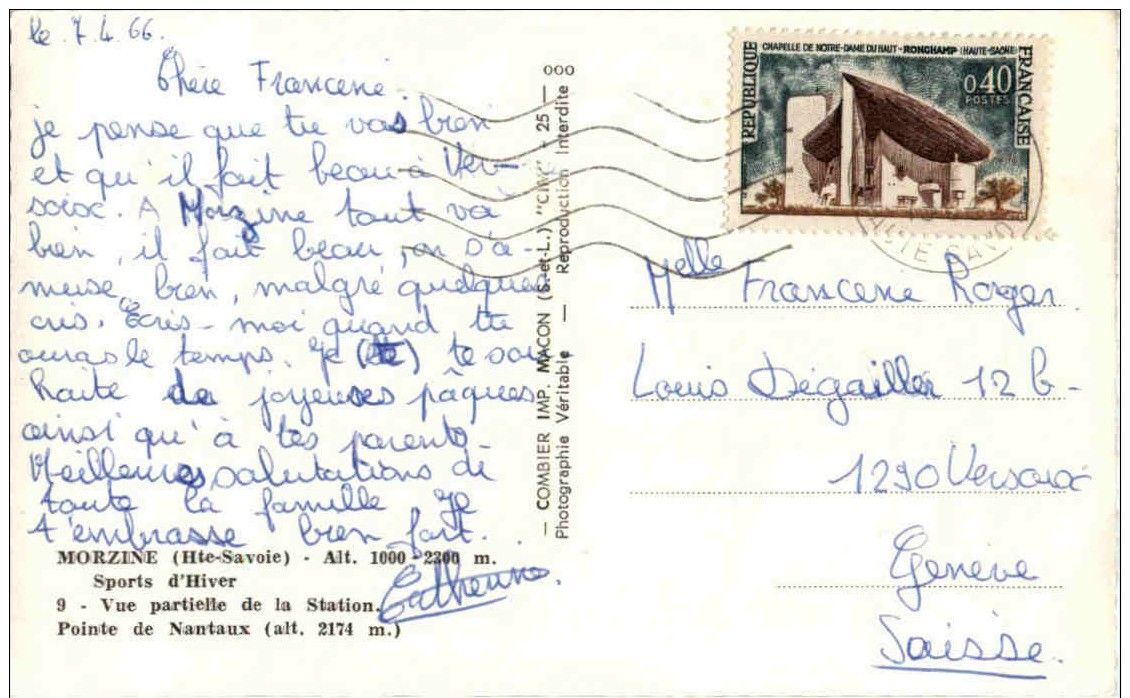 le 7.4.66.
Chère Francene.
je pense que tu vas bien
et qu'il fait beau à Ver-
soix. A Morzine tout va
bien, il fait beau, on s'a-
muse, bien, malgré quelques
cris. Ecris-moi quand tu
auras le temps. Je (te) te sou-
haite de joyeuses pâques
ainsi qu'à tes parents.
Meilleures salutations de
toute la famille je
t'embrasse bien fort.
Catherine.
MORZINE (Hte-Savoie) - Alt. 1000-2200 m.
Sports d'Hiver
9 - Vue partielle de la Station.
Pointe de Nantaux (alt. 2174 m.)
— COMBIER IMP. MACON (S.-et-L.) "CIM" - 25 — ooo
Photographie Véritable — Reproduction Interdite
CHAPELLE DE NOTRE-DAME DU HAUT - RONCHAMP (HAUTE-SAONE)
REPUBLIQUE
FRANCAISE
0,40
POSTES
HTE SAVOIE
Melle Francene Roger
Louis Dégallier 12 b-
1290 Versoix
Genève
Suisse.